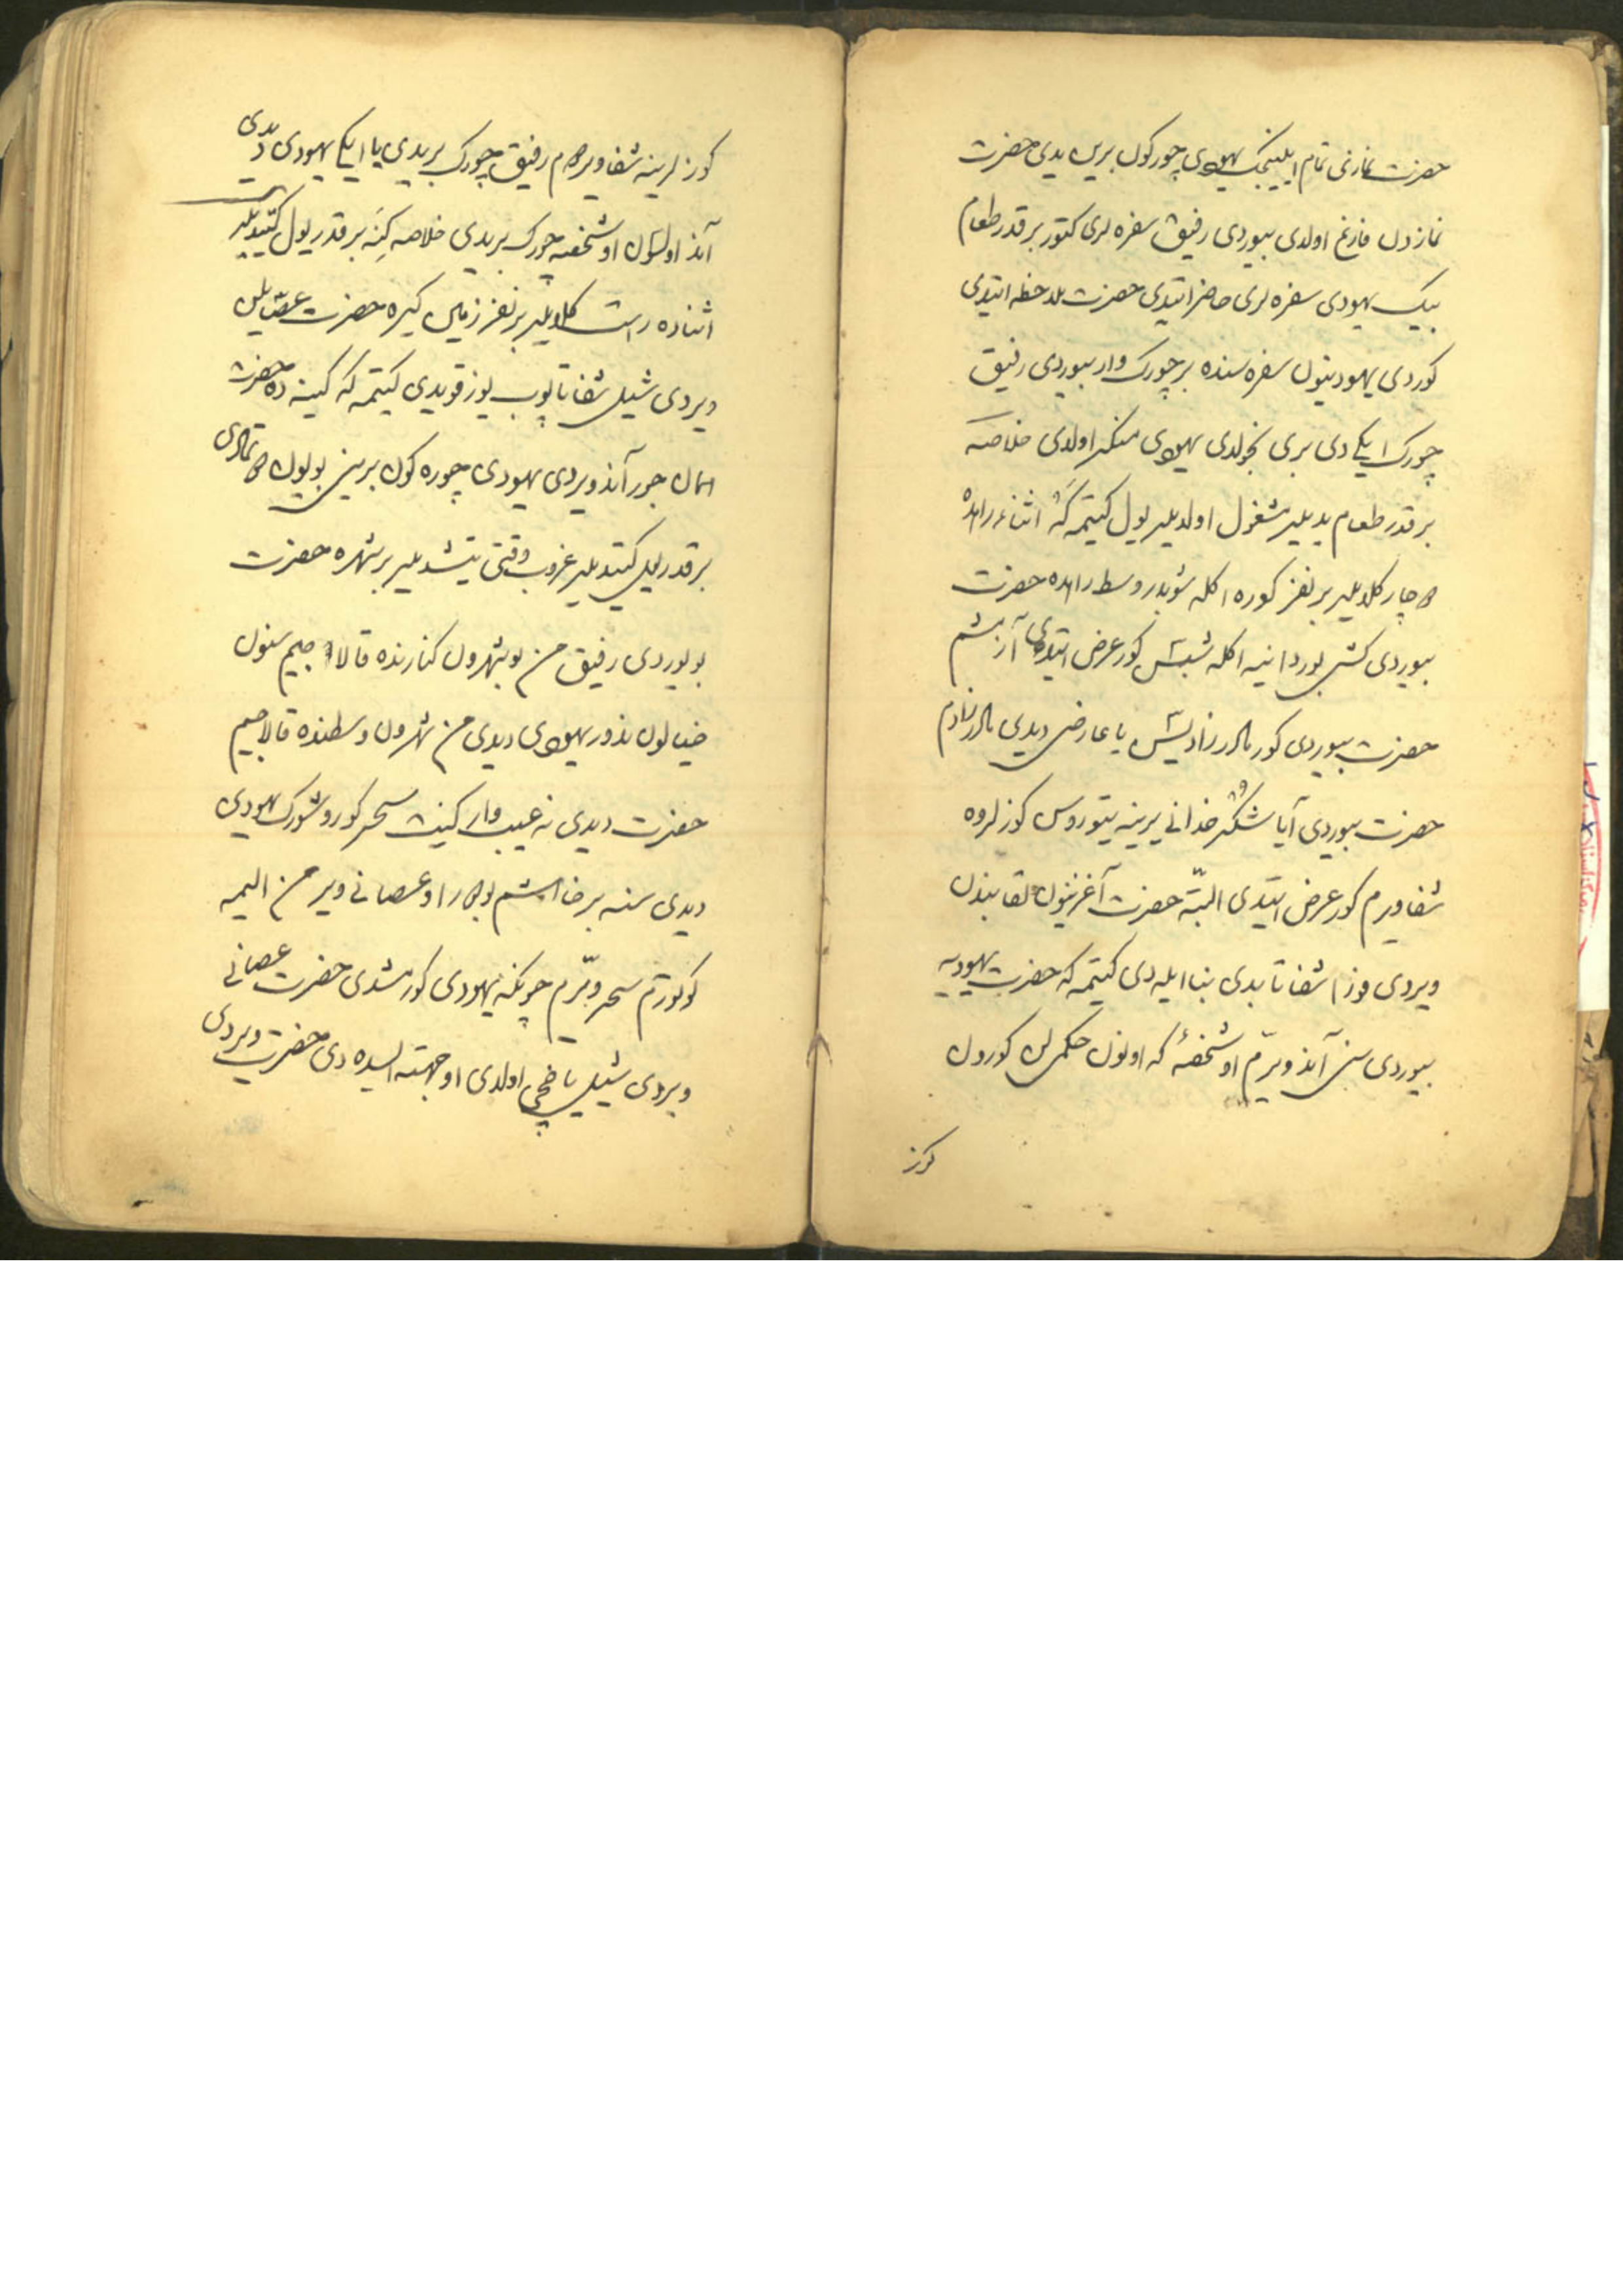 حضرت نمازنی تمام ایلینجک یهودی چورکون برین یدی حضرت
نمازدن فارغ اولدی بیوردی رفیق سفره لری کتور بر قدر طعام
ییک یهودی سفره لری حاضر ایتدی حضرت ملاحظه ایتدی
کوردی یهودینون سفره سنده بر چورک وار بیوردی رفیق
چورک ایکی دی بری نجولدی یهودی منکر اولدی خلاصه
بر قدر طعام یدیلیر مشغول اولدیلیر یول کیتمکه اثناء راهده
دچار کلدیلیر بر نفر کوره اکلشوبدر وسط راهده حضرت
بیوردی کشی بوردا نیه اکلشبسن کور عرض ایتدی آزمشم
حضرت بیوردی کور مادرزادیسن یا عارضی دیدی مادرزادم
حضرت بیوردی آیا شکر خدانی یرینه یتوروسن کوزلروه
شفا ویرم کور عرض ایتدی البته حضرت آغزینون لقابندن
ویردی فوراً شفا تاپدی بنا ایله دی کیتمکه حضرت یهودیه
بیوردی سنی آند ویرّم او شخصه که اونون حکمیلن کورون
کوز
کوزلرینه شفا ویردم رفیق چورک بریدی یا ایکی یهودی دیدی
آند اولسون او شخصه چورک بریدی خلاصه کینه بر قدر یول کیتدیلیر
اثناده راست کلدیلیر بر نفر زمین کیره حضرت عصاسیلن
ویردی شیل شفا تاپوب یوز قویدی کیتمکه کینه ده حضرت
همان جور آند ویردی یهودی چوره کون برین بویون داندی
بر قدر یول کیتدیلیر غروب وقتی یتشدیلیر بر شهره حضرت
بویوردی رفیق من بو شهرون کنارنده قالاجیم سنون
خیالون نه دور یهودی دیدی من شهرون وسطنده قالاجیم
حضرت دیدی نه عیب وار کیت سحر کوروشورک یهودی
دیدی سنه بر خواهشم وار او عصانی ویر من الیمه
کوتورم سحر ویرّم چونکه یهودی کورمشدی حضرت عصانی
ویردی شیل یاخچی اولدی او جهته ایسته دی حضرت ویردی